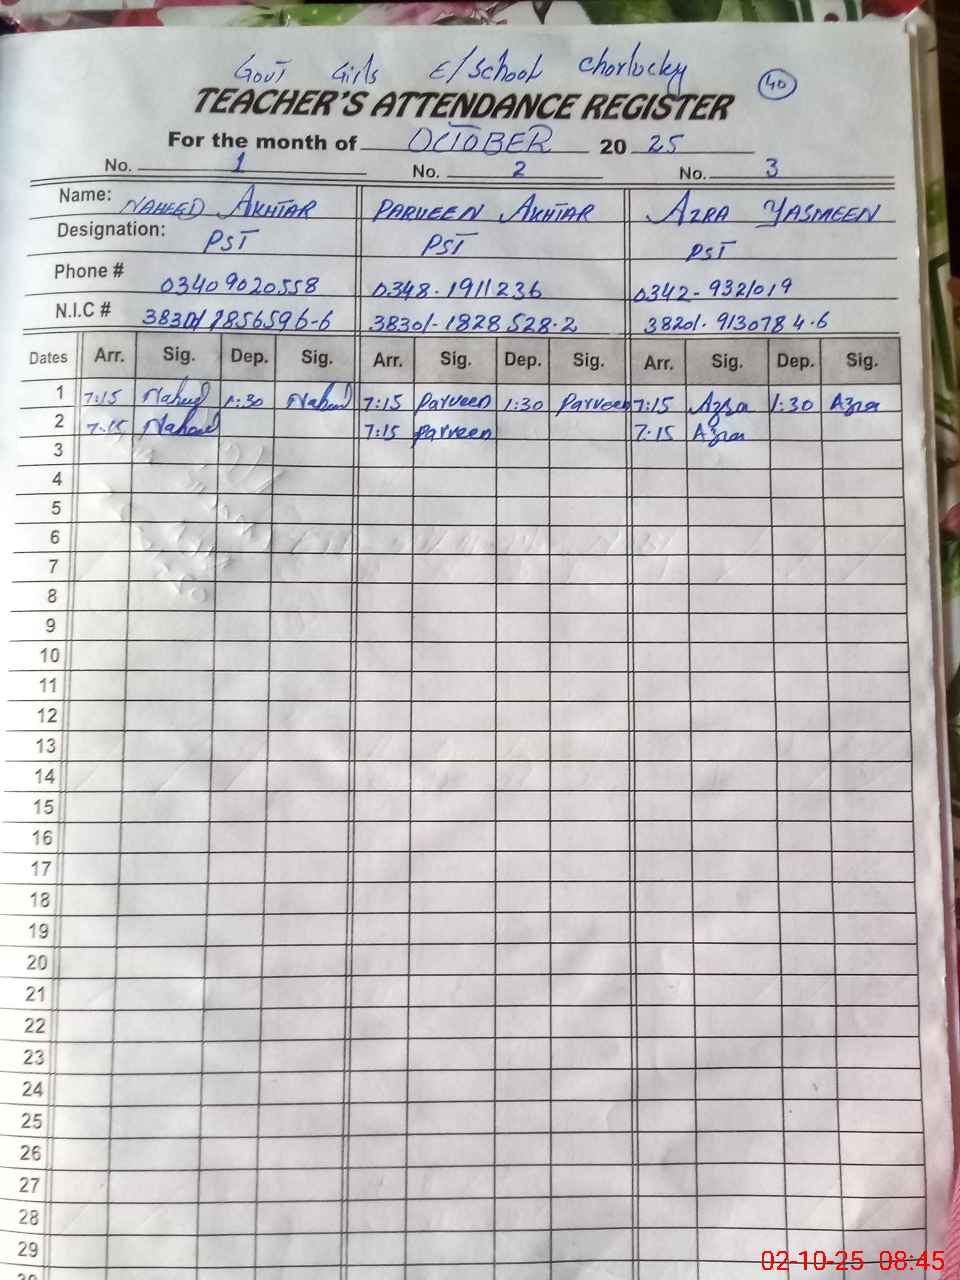 Govt Girls E/School Chorlucky
40
TEACHER'S ATTENDANCE REGISTER
For the month of OCTOBER 20 25
No. 1 No. 2 No. 3
Name: NAHEED AKHTAR PARVEEN AKHTAR AZRA YASMEEN
Designation: PST PST PST
Phone # 03409020558 0348-1911236 0342-9321019
N.I.C # 38301-1828528-2 38201-9130784-6
Dates Arr. Sig. Dep. Sig. Arr. Sig. Dep. Sig. Arr. Sig. Dep. Sig.
1 7:15 Naheed 1:30 Naheed 7:15 Parveen 1:30 Parveen 7:15 Azra 1:30 Azra
2 7:15 Naheed 7:15 Parveen 7:15 Azra
3
4
5
6
7
8
9
10
11
12
13
14
15
16
17
18
19
20
21
22
23
24
25
26
27
28
29
02-10-25 08:45